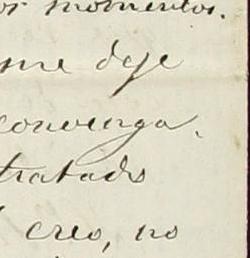 os momentos.
me deje
convenga.
tratado
creo, no